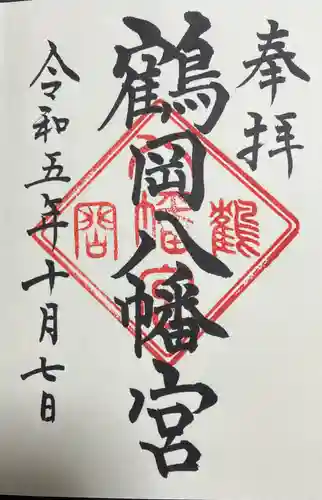 奉拝
鶴岡八幡宮
鶴岡八幡宮
令和五年十月七日